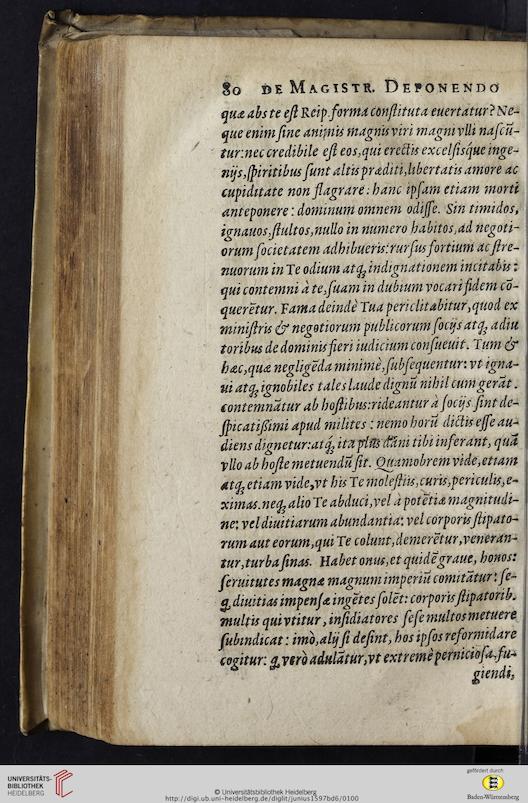 80 DE MAGISTR. DEPONENDO
quæ abs te eſt Reip. forma conſtituta euertatur? Ne-
que enim ſine animis magnis viri magni vlli naſcũ-
tur: nec credibile eſt eos, qui erectis excelſisq́ue inge-
nijs, ſpiritibus ſunt altis præditi, libertatis amore ac
cupiditate non flagrare: hanc ipſam etiam morti
anteponere: dominum omnem odiſſe. Sin timidos,
ignauos, ſtultos, nullo in numero habitos, ad negoti-
orum ſocietatem adhibueris: rurſus fortium ac ſtre-
nuorum in Te odium atq; indignationem incitabis:
qui contemni à te, ſuam in dubium vocari fidem cõ-
querẽtur. Fama deindè Tua periclitabitur, quod ex
miniſtris & negotiorum publicorum ſocijs atq; adiu
toribus de dominis fieri iudicium conſueuit. Tum &
hæc, quæ negligẽda minimè, ſubſequentur: vt igna-
ui atq; ignobiles tales laude dignũ nihil cum gerãt.
contemnãtur ab hoſtibus: rideantur à ſocijs: ſint de-
ſpicatißimi apud milites: nemo horũ dictis eſſe au-
diens dignetur: atq́; ita plus dãni tibi inferant, quã
vllo ab hoſte metuendũ ſit. Quamobrem vide, etiam
atq; etiam vide, vt his Te moleſtiis, curis, periculis, e-
ximas. neq; alio Te abduci, vel à potẽtiæ magnitudi-
ne: vel diuitiarum abundantia: vel corporis ſtipato-
rum aut eorum, qui Te colunt, demerẽtur, veneran-
tur, turba ſinas. Habet onus, et quidẽ graue, honos:
ſeruitutes magnæ magnum imperiũ comitãtur: ſe-
q; diuitias impenſæ ingẽtes ſolẽt: corporis ſtipatorib.
multis qui vtitur, inſidiatores ſeſe multos metuere
ſubindicat: imò, alij ſi deſint, hos ipſos reformidare
cogitur: q; verò adulãtur, vt extremè pernicioſa, fu-
giendi,
UNIVERSITÄTS-
BIBLIOTHEK
HEIDELBERG
© Universitätsbibliothek Heidelberg
http://digi.ub.uni-heidelberg.de/diglit/junius1597bd6/0100
gefördert durch
Baden-Württemberg